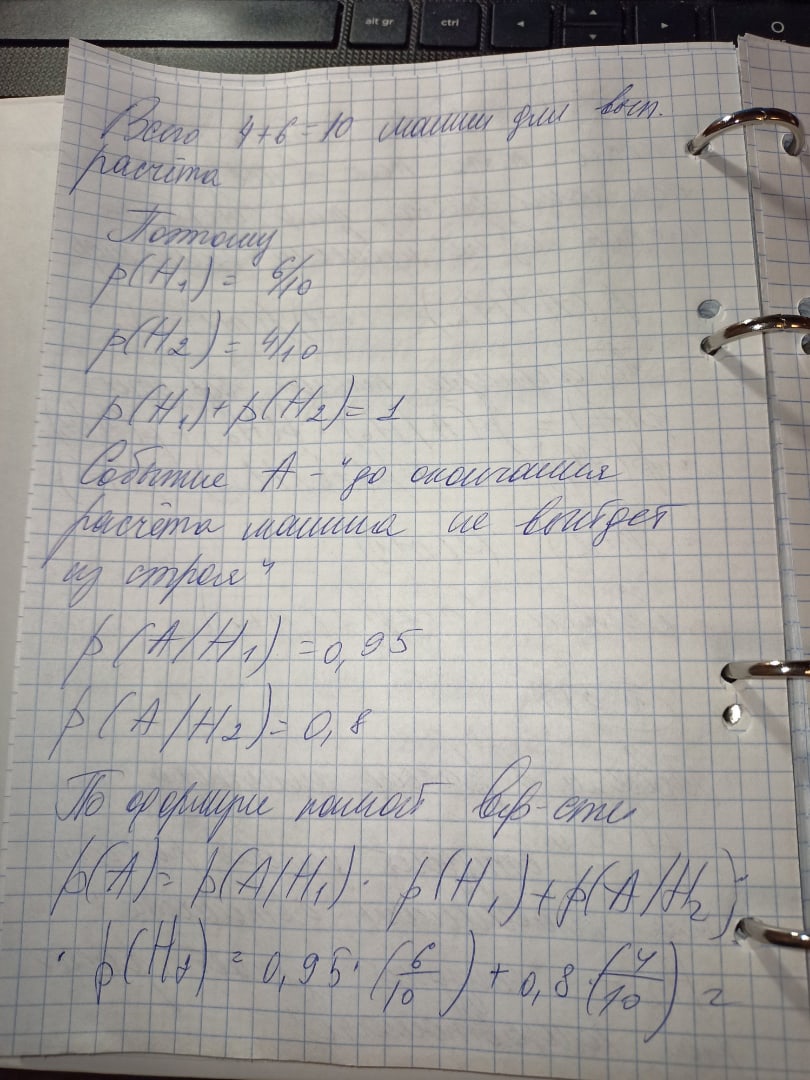 alt gr
ctrl
Всего 4+6=10 машин для вып.
расчёта
Поэтому
p(H₁) = 6/10
p(H₂) = 4/10
p(H₁)+p(H₂)=1
Событие A - "до окончания
расчёта машина не выйдет
из строя"
p(A/H₁) = 0,95
p(A/H₂) = 0,8
По формуле полной вер-сти
p(A)= p(A/H₁) · p(H₁)+p(A/H₂)·
· p(H₂) = 0,95 · (6/10) + 0,8 · (4/10) =